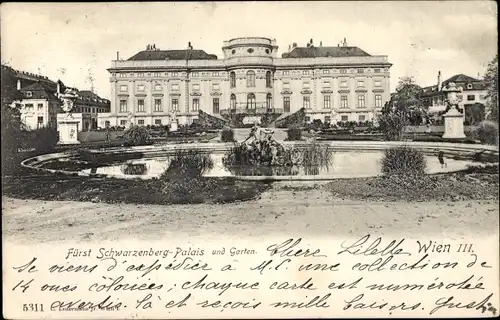 Fürst Schwarzenberg-Palais und Garten.
Wien III.
Chère Lilette,
Je viens d'expédier à M.C. une collection de
14 vues colonices; chaque carte est numérotée
avertis-là et reçois mille baisers, Gust
5311